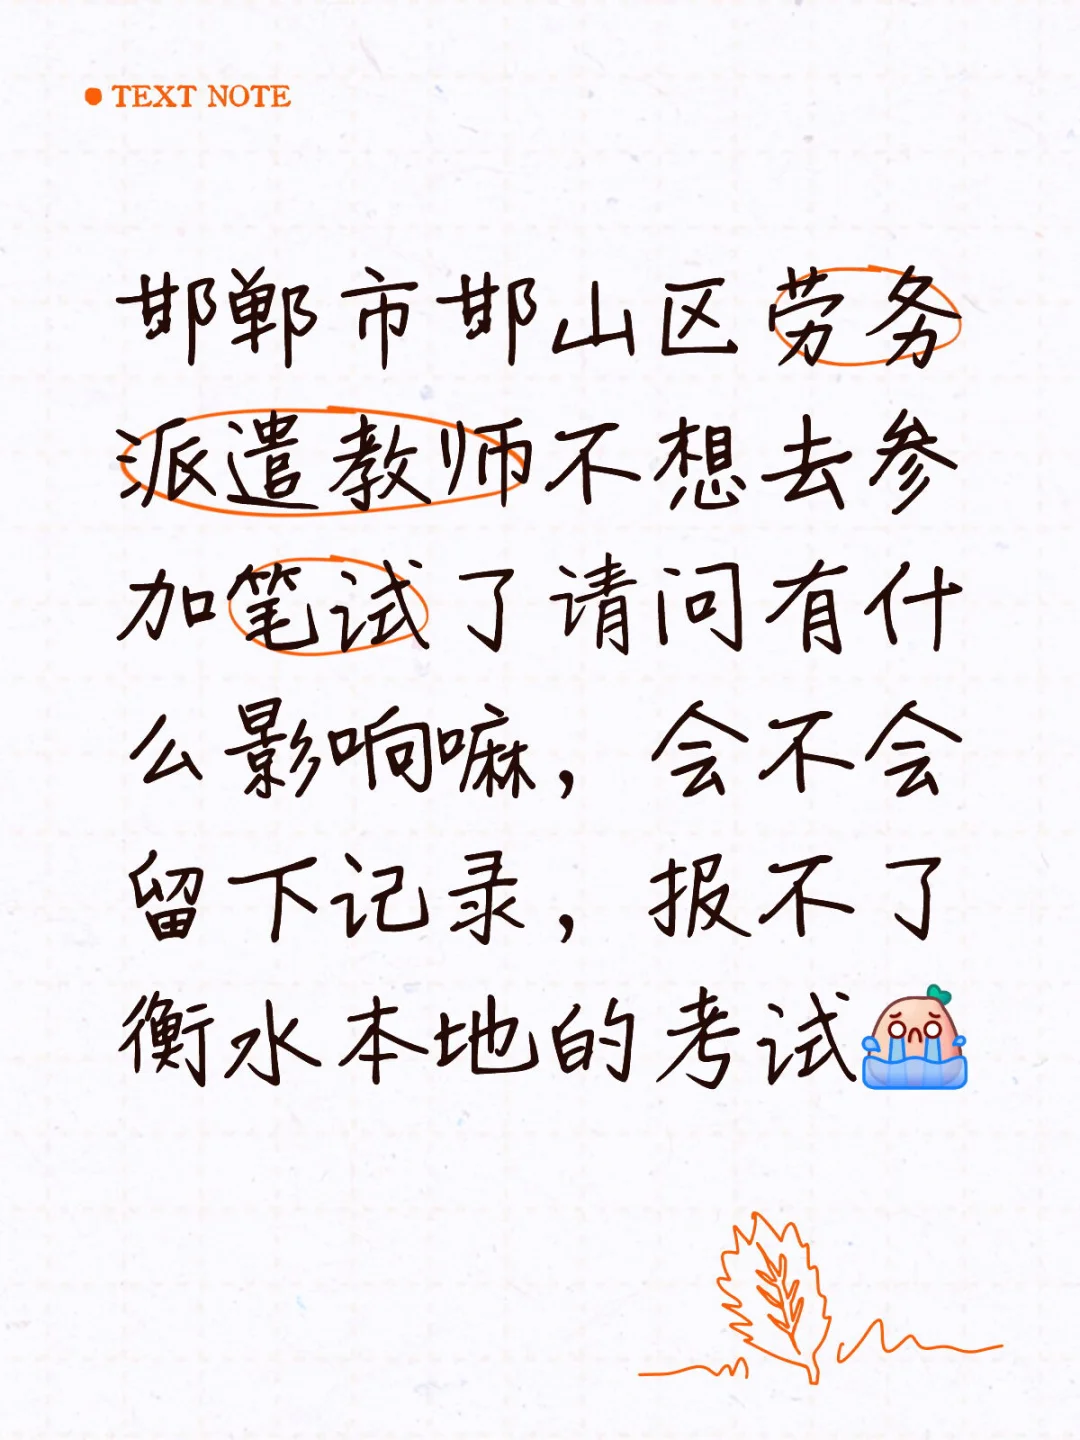 TEXT NOTE
邯郸市邯山区劳务
派遣教师不想去参
加笔试了请问有什
么影响嘛，会不会
留下记录，报不了
衡水本地的考试